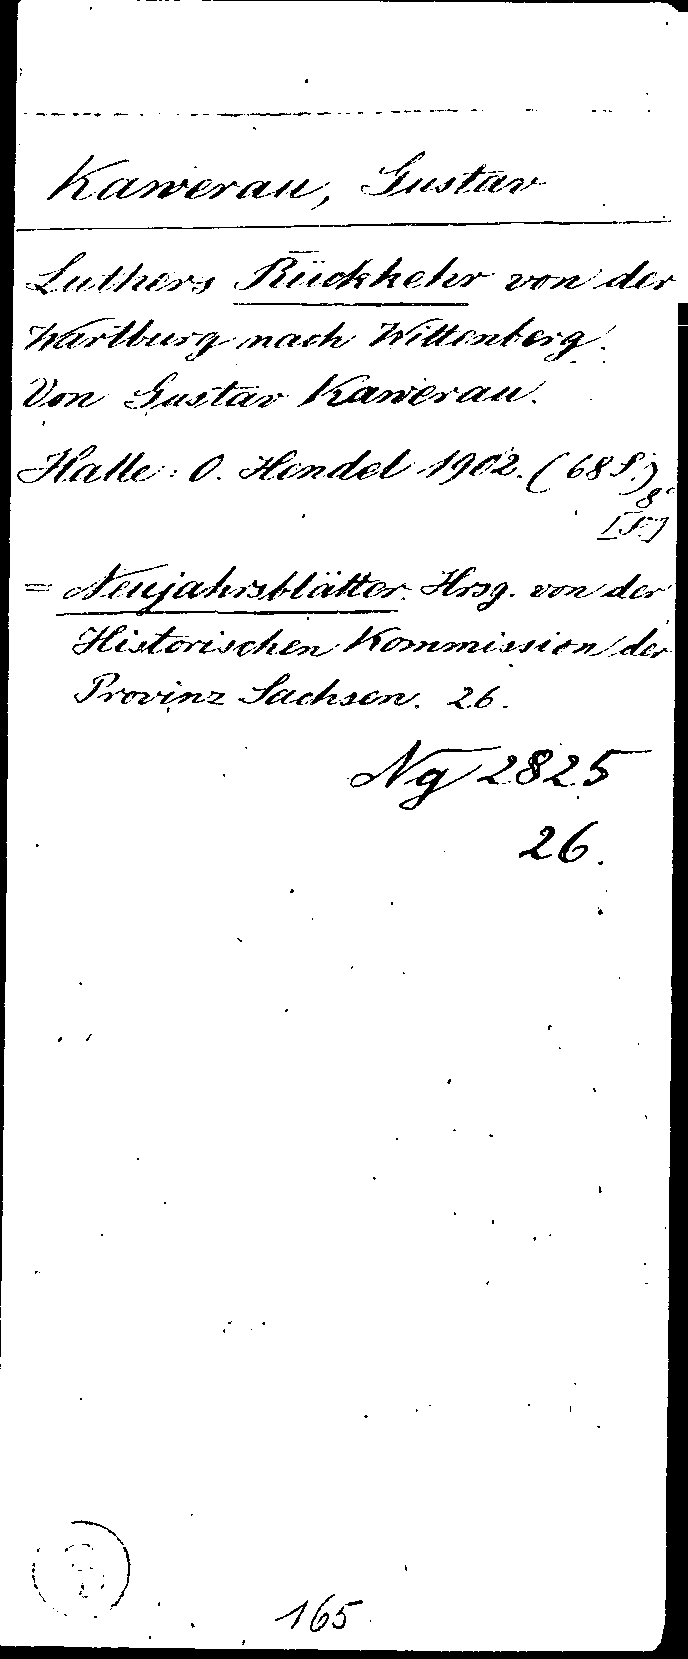 Kawerau, Gustav
Luthers Rückkehr von der
Wartburg nach Wittenberg.
Von Gustav Kawerau.
Halle: O. Hendel 1902. (68 S.)
8°
= Neujahrsblätter. Hrsg. von der
Historischen Kommission der
Provinz Sachsen. 26.
Ng 2825
26.
165